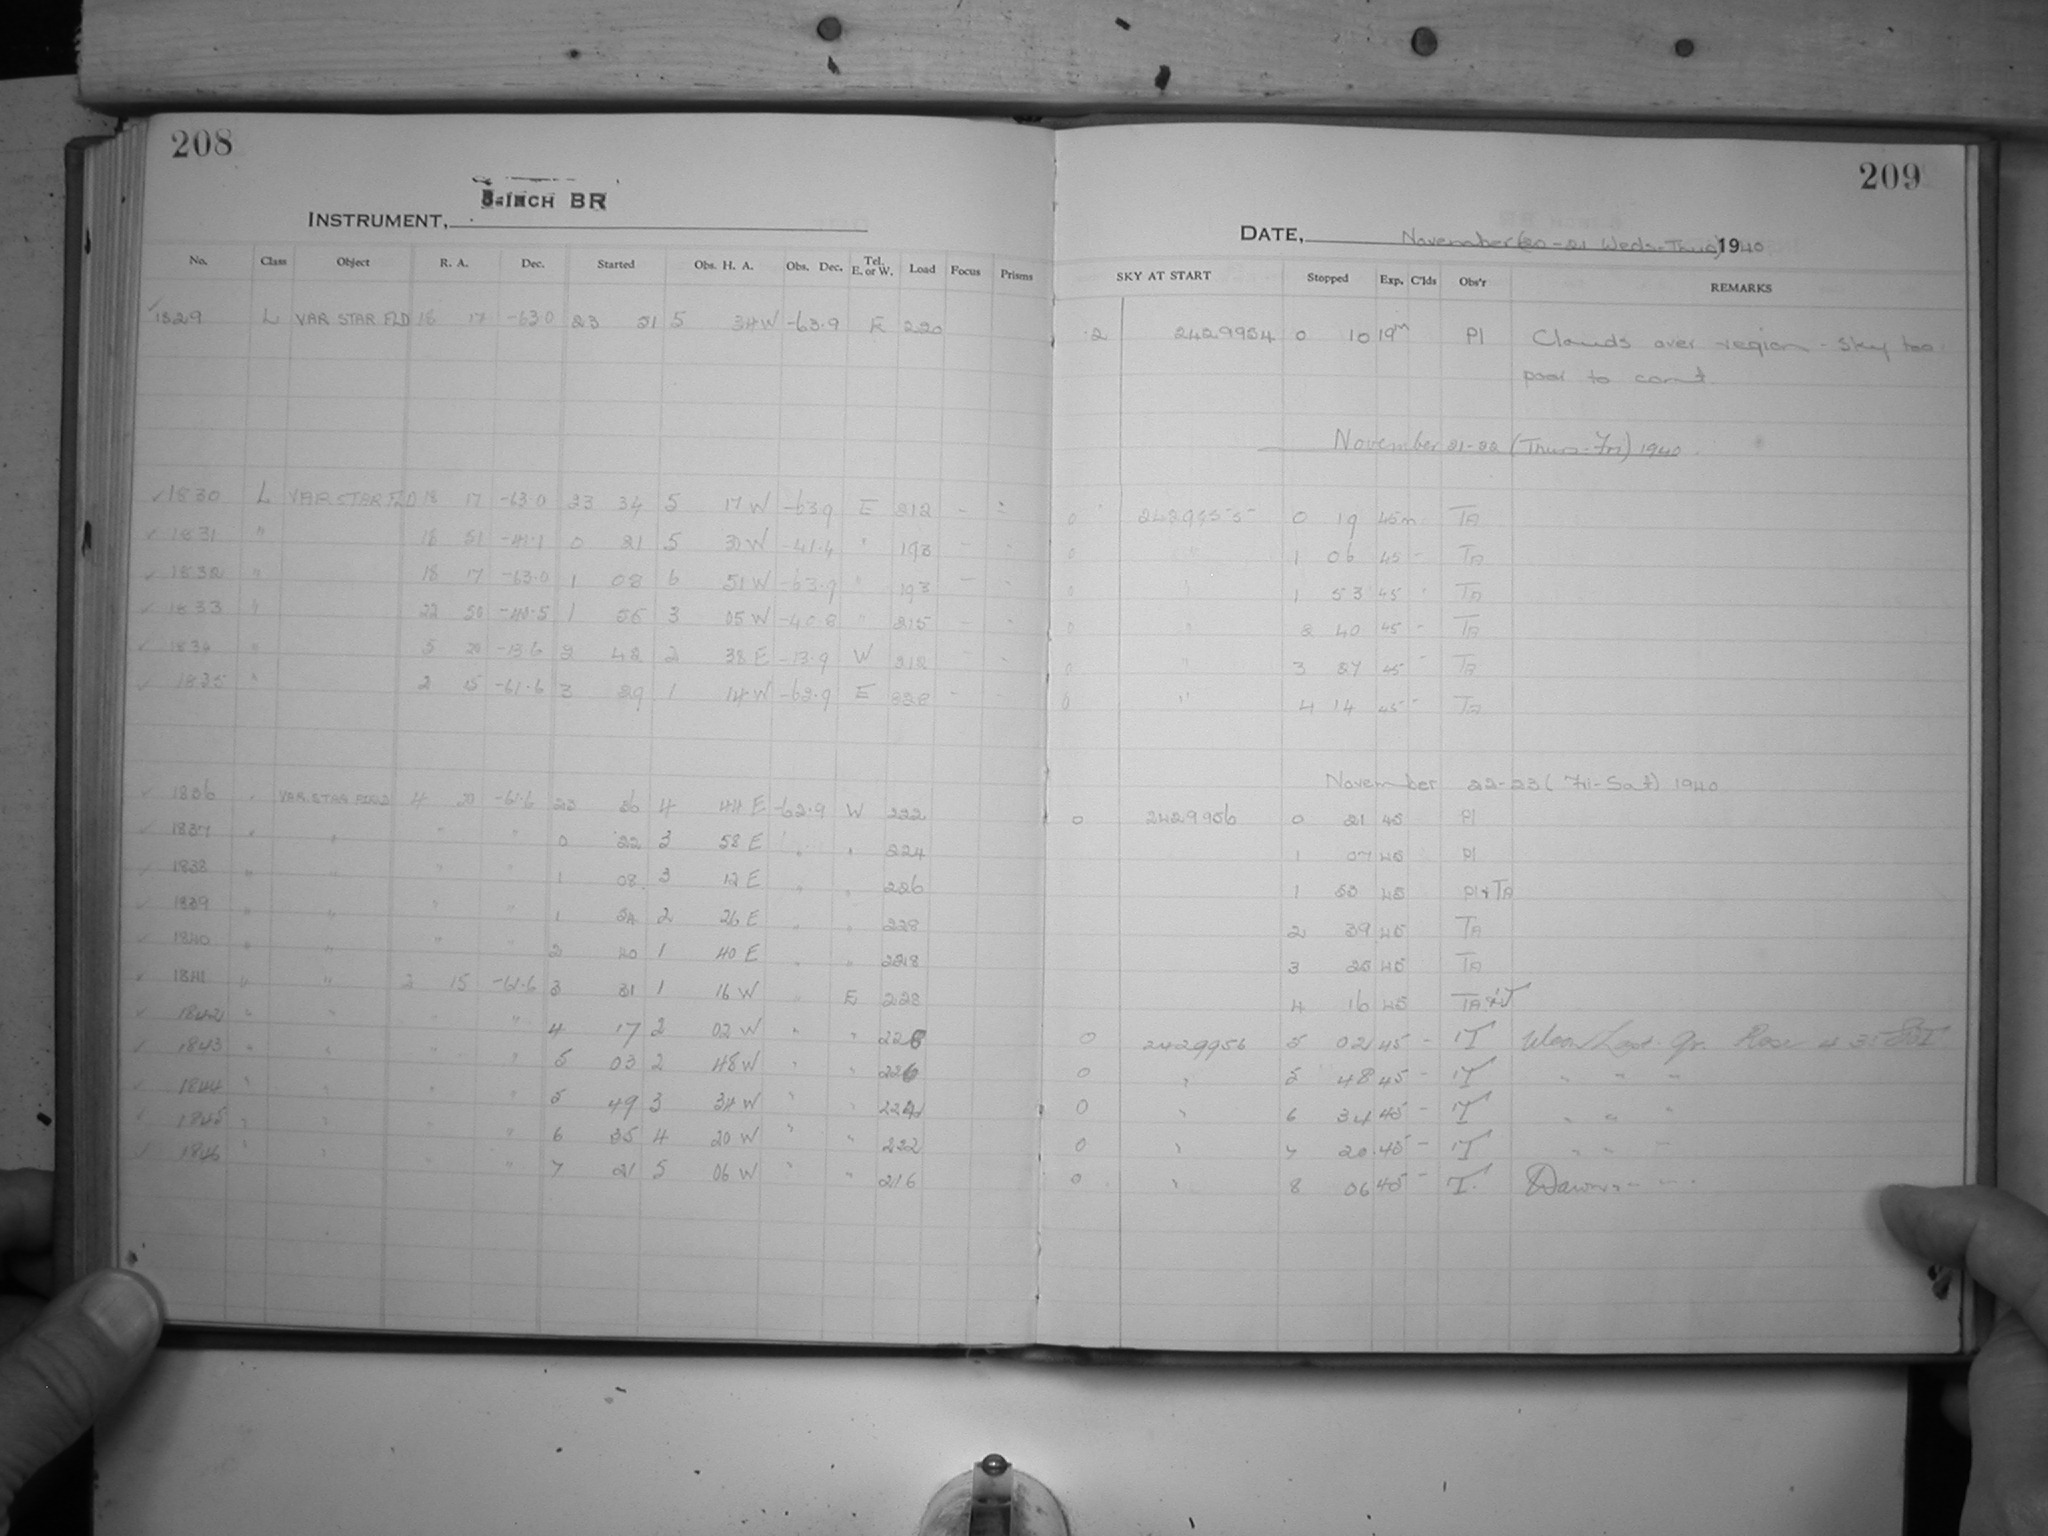 208
8-INCH BR
INSTRUMENT,
No. Class Object R. A. Dec. Started Obs. H. A. Obs. Dec. Tel. E. or W. Load Focus Prisms
1829 L VAR STAR FLD 18 17 -63.0 23 51 5 34 W -63.9 E 220
1830 L VAR STAR FLD 18 17 -63.0 23 34 5 17 W -63.9 E 212 - -
1831 " 18 51 -41.1 0 21 5 W -41.4 " 193 - -
1832 " 18 17 -63.0 1 08 6 51 W -63.9 " 193 - -
1833 " 22 50 -40.5 1 55 3 05 W -40.8 " 215 - -
1834 " 5 20 -13.6 2 42 2 38 E -13.9 W 212 - -
1835 " 2 15 -61.6 3 29 1 14 W -62.9 E - -
1836 " VAR. STAR FIELD 4 20 -61.6 23 36 4 44 E -62.9 W 222
1837 " " " " 0 22 3 58 E " " 224
1838 " " " " 1 08 3 12 E " " 226
1839 " " " " 1 54 2 26 E " " 228
1840 " " " " 2 40 1 40 E " " 228
1841 " " 2 15 -61.6 3 31 1 16 W " E 228
1842 " " " 4 17 2 02 W " " 228
1843 " " " 5 03 2 48 W " " 226
1844 " " " 5 49 3 34 W " " 224
1845 " " " 6 35 4 20 W " " 222
1846 " " " 7 21 5 06 W " " 216
209
DATE, November (20-21 Weds-Thurs) 1940
SKY AT START Stopped Exp. C'lds Obs'r REMARKS
2 2429954 0 10 19m PI Clouds over region - sky too
poor to cont.
November 21-22 (Thurs-Fri) 1940
0 2429955 0 19 45m TA
0 " 1 06 45 - TA
0 " 1 53 45 - TA
0 " 2 40 45 - TA
0 " 3 27 45 - TA
0 " 4 14 45 - TA
November 22-23 (Fri-Sat) 1940
0 2429956 0 21 45 PI
1 07 45 PI
1 53 45 PI & TA
2 39 45 TA
3 25 45 TA
4 16 45 TA & T
0 2429956 5 02 45 - T Moon Last Qr. Rose
0 " 5 48 45 - T " " "
0 " 6 34 45 - T " " "
0 " 7 20 45 - T " " "
0 " 8 06 45 - T. Dawn